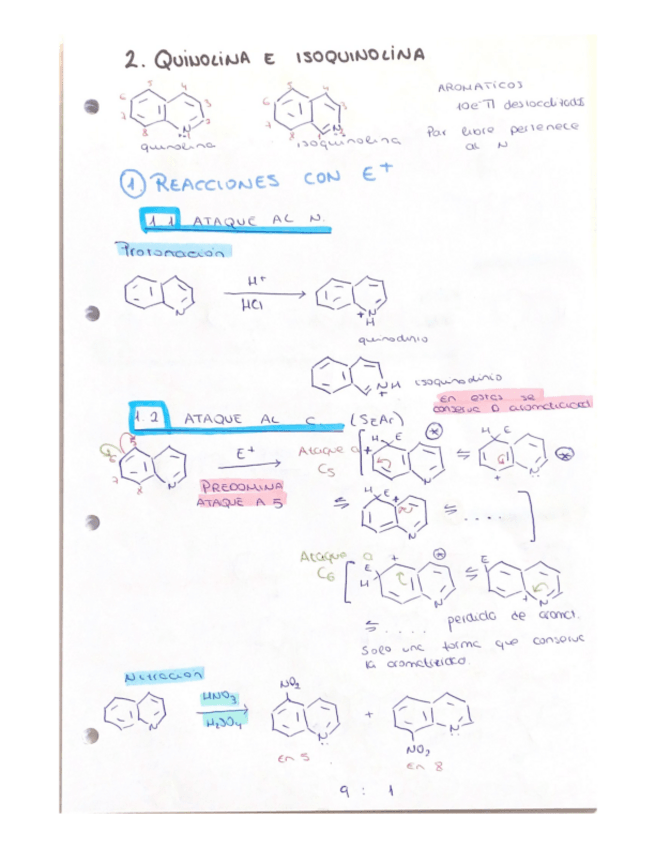 2. QUINOLINA E ISOQUINOLINA
5 4 6 3 7 2 8 N 1
quinolina
5 4 6 3 7 N 2 8 1
isoquinolina
AROMATICOS
10e⁻ π deslocalizados
Par libre pertenece
al N
1 REACCIONES CON E+
1.1 ATAQUE AL N.
Protonación
N
H+
HCl
+N
H
quinolinio
NH
+
isoquinolinio
en estas se
conserva la aromaticidad
1.2 ATAQUE AL C (SEAr)
5 6 7 8 N
E+
PREDOMINA
ATAQUE A 5
Ataque a
C5
H E + N * ⇆ H E + N *
⇆ H E + N ⇆ ....
Ataque a
C6
E H + N * ⇆ E + N
⇆ .... perdida de aroma.
Solo una forma que conserva
la aromaticidad.
Nitración
N
HNO3
H2SO4
NO2
N
en 5
+
N
NO2
en 8
9 : 1